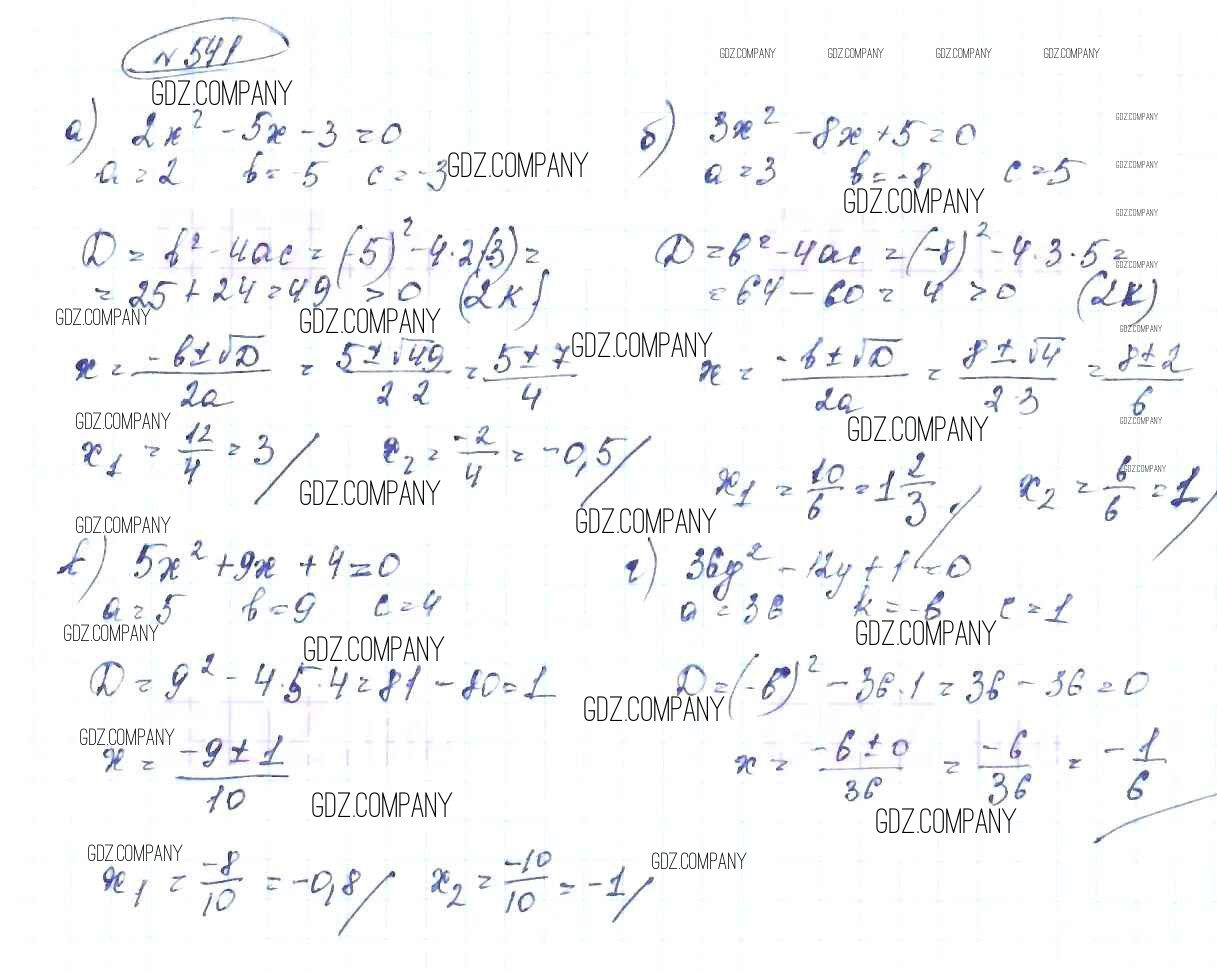 № 541
GDZ.COMPANY
GDZ.COMPANY GDZ.COMPANY GDZ.COMPANY GDZ.COMPANY
а) 2x² - 5x - 3 = 0
a = 2 b = -5 c = -3 GDZ.COMPANY
D = b² - 4ac = (-5)² - 4·2(-3) =
= 25 + 24 = 49 > 0 (2к)
GDZ.COMPANY GDZ.COMPANY
x = (-b ± √D)/2a = (5 ± √49)/(2·2) = (5 ± 7)/4 GDZ.COMPANY
GDZ.COMPANY
x₁ = 12/4 = 3 / x₂ = -2/4 = -0,5 /
GDZ.COMPANY
GDZ.COMPANY
б) 3x² - 8x + 5 = 0 GDZ.COMPANY
a = 3 b = -8 c = 5 GDZ.COMPANY
GDZ.COMPANY GDZ.COMPANY
D = b² - 4ac = (-8)² - 4·3·5 =
GDZ.COMPANY
= 64 - 60 = 4 > 0 (2к)
GDZ.COMPANY
x = (-b ± √D)/2a = (8 ± √4)/(2·3) = (8 ± 2)/6
GDZ.COMPANY GDZ.COMPANY
GDZ.COMPANY
x₁ = 10/6 = 1 2/3 / x₂ = 6/6 = 1 /
GDZ.COMPANY
в) 5x² + 9x + 4 = 0
a = 5 b = 9 c = 4
GDZ.COMPANY GDZ.COMPANY
D = 9² - 4·5·4 = 81 - 80 = 1
GDZ.COMPANY
x = (-9 ± 1)/10
GDZ.COMPANY
GDZ.COMPANY
x₁ = -8/10 = -0,8 / x₂ = -10/10 = -1 /
г) 36y² - 12y + 1 = 0
a = 36 k = -6 c = 1
GDZ.COMPANY
D = (-6)² - 36·1 = 36 - 36 = 0
GDZ.COMPANY
x = (-6 ± 0)/36 = -6/36 = -1/6
GDZ.COMPANY
GDZ.COMPANY